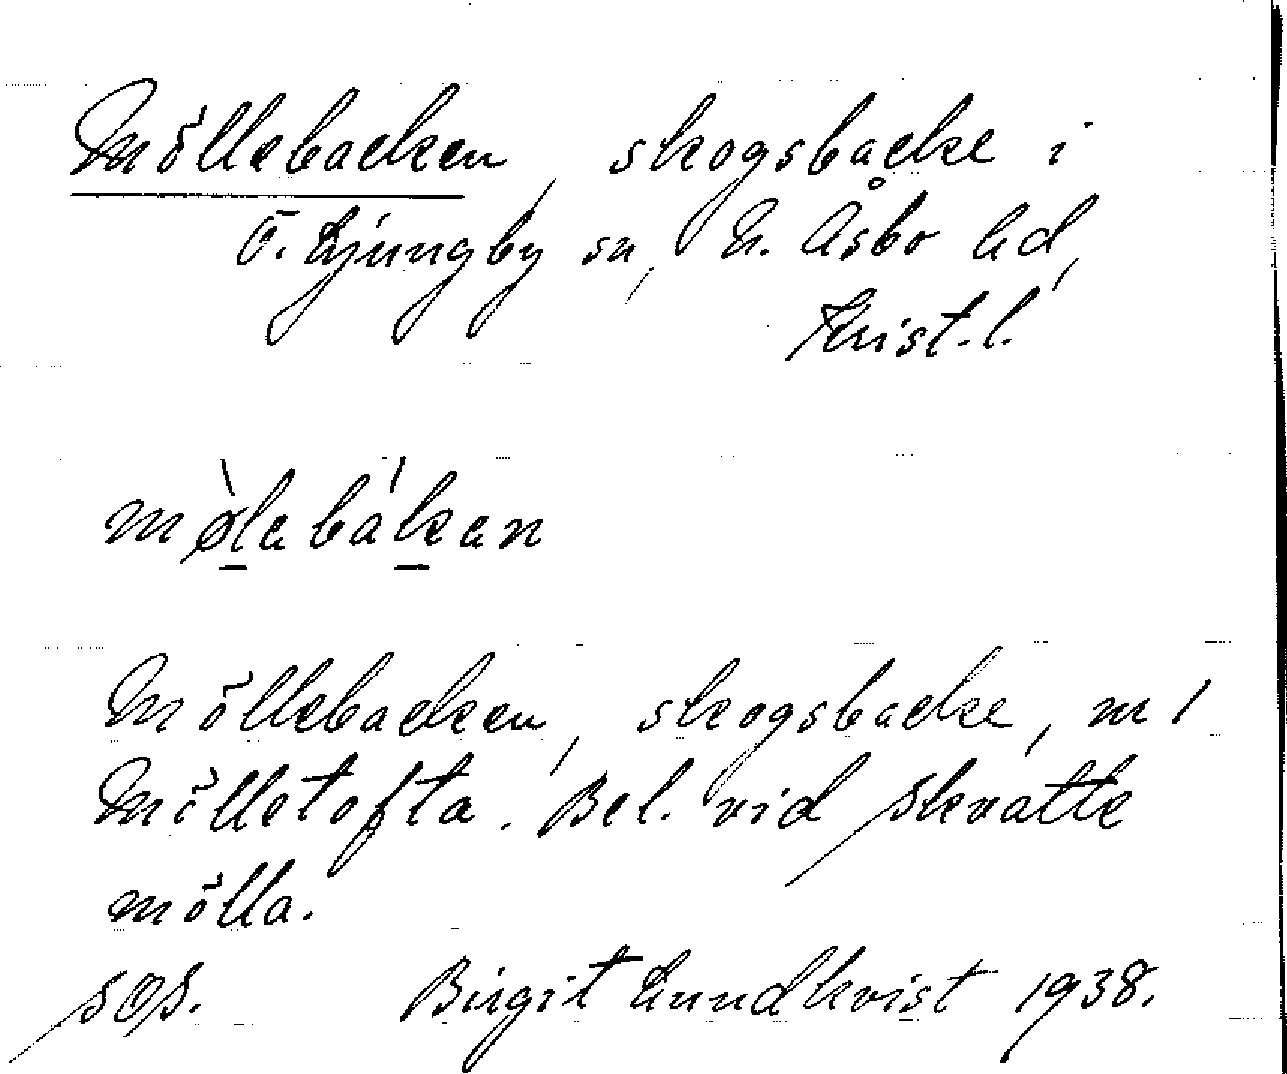 Möllebacken, skogsbacke i
Ö. Ljungby sn, N. Åsbo hd,
Krist. l.
mø̀lebákan
Möllebacken, skogsbacke, m 1
Mölletofta. Bel. vid Skvatte
mölla.
SOS. Birgit Lundkvist 1938.